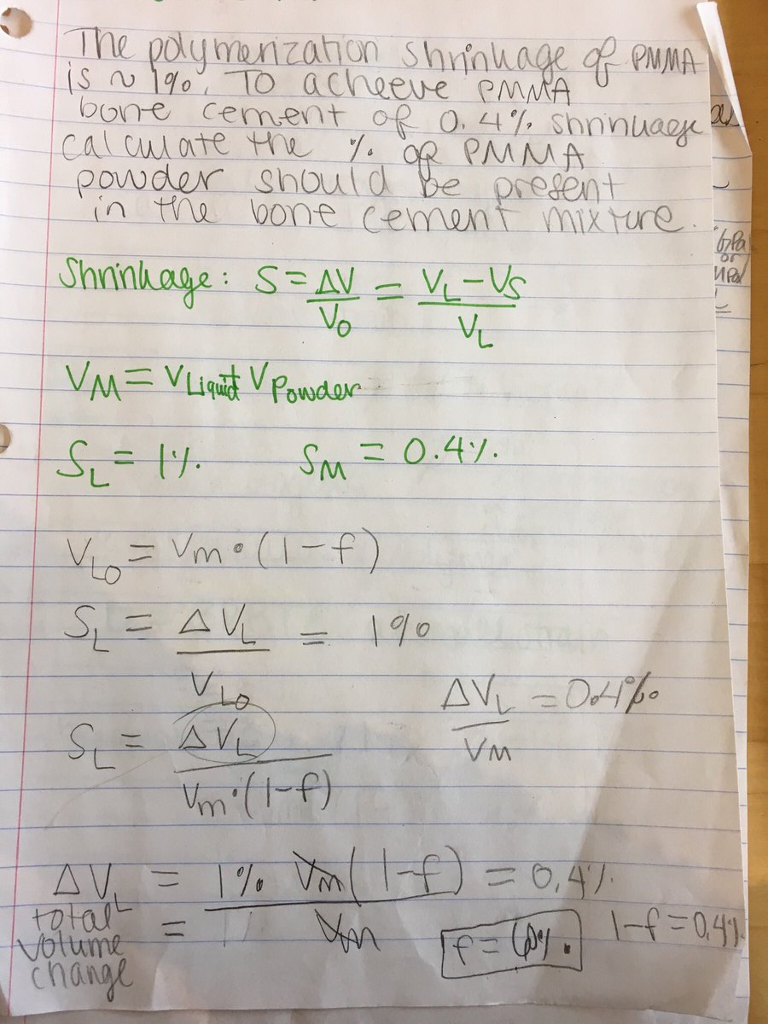 The polymerization shrinkage of PMMA
is ~ 1%. To acheeve PMMA
bone cement of 0.4% shrinkage
calculate the % of PMMA
powder should be present
in the bone cement mixture.
Shrinkage: S = ΔV/V₀ = (V_L - V_S)/V_L
V_M = V_Liquid + V_Powder
S_L = 1%. S_M = 0.4%.
V_LO = V_m • (1-f)
S_L = ΔV_L/V_LO = 1%
ΔV_L/V_M = 0.4%
S_L = ΔV_L/(V_m • (1-f))
ΔV_L = 1% V_m (1-f)/V_m = 0.4%.
total volume change =
f = 60%.
1-f = 0.4%